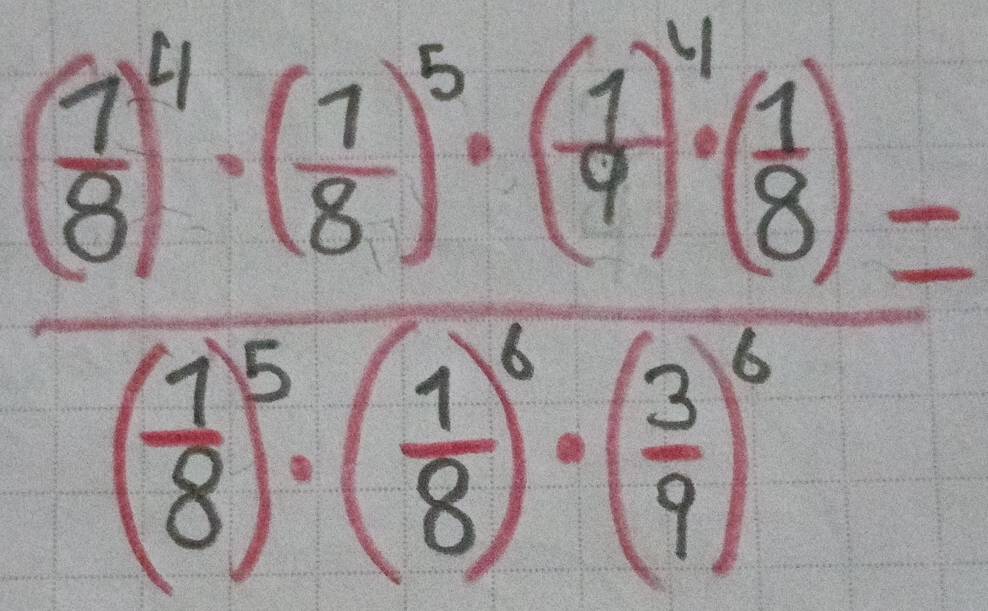 (1/8)^4 · (1/8)^5 · (1/9)^4 · (1/8) =
(1/8)^5 · (1/8)^6 · (3/9)^6